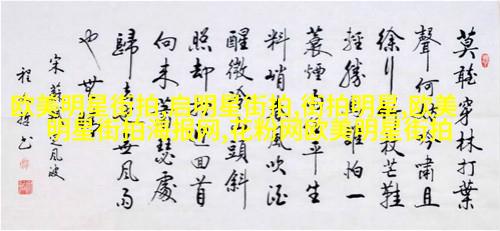 莫聽穿林打葉
聲何妨吟嘯且
徐行竹杖芒鞋
輕勝馬誰怕一
蓑煙雨任平生
料峭春風吹酒
醒微冷山頭斜
照却相迎回首
向来蕭瑟處
歸去也無風雨
也無晴
宋蘇軾定風波
欧美明星街拍,启明星街拍,街拍明星,欧美
明星街拍海报网,花粉网欧美明星街拍